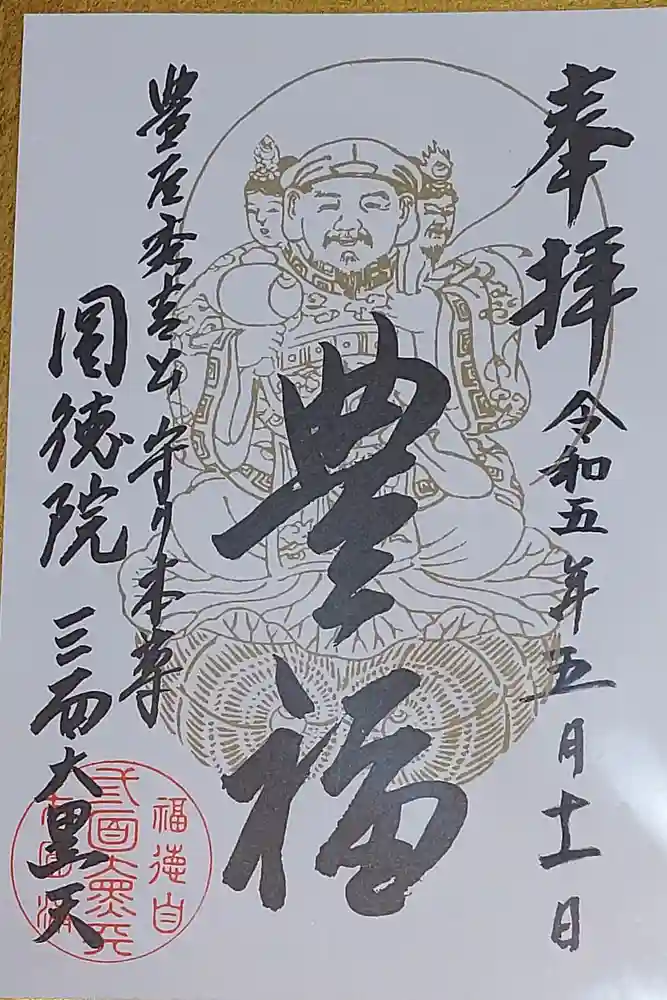 奉拝 令和五年五月十一日
豊福
豊臣秀吉公守り本尊
圓徳院 三面大黒天
福徳自
弎面大黒天